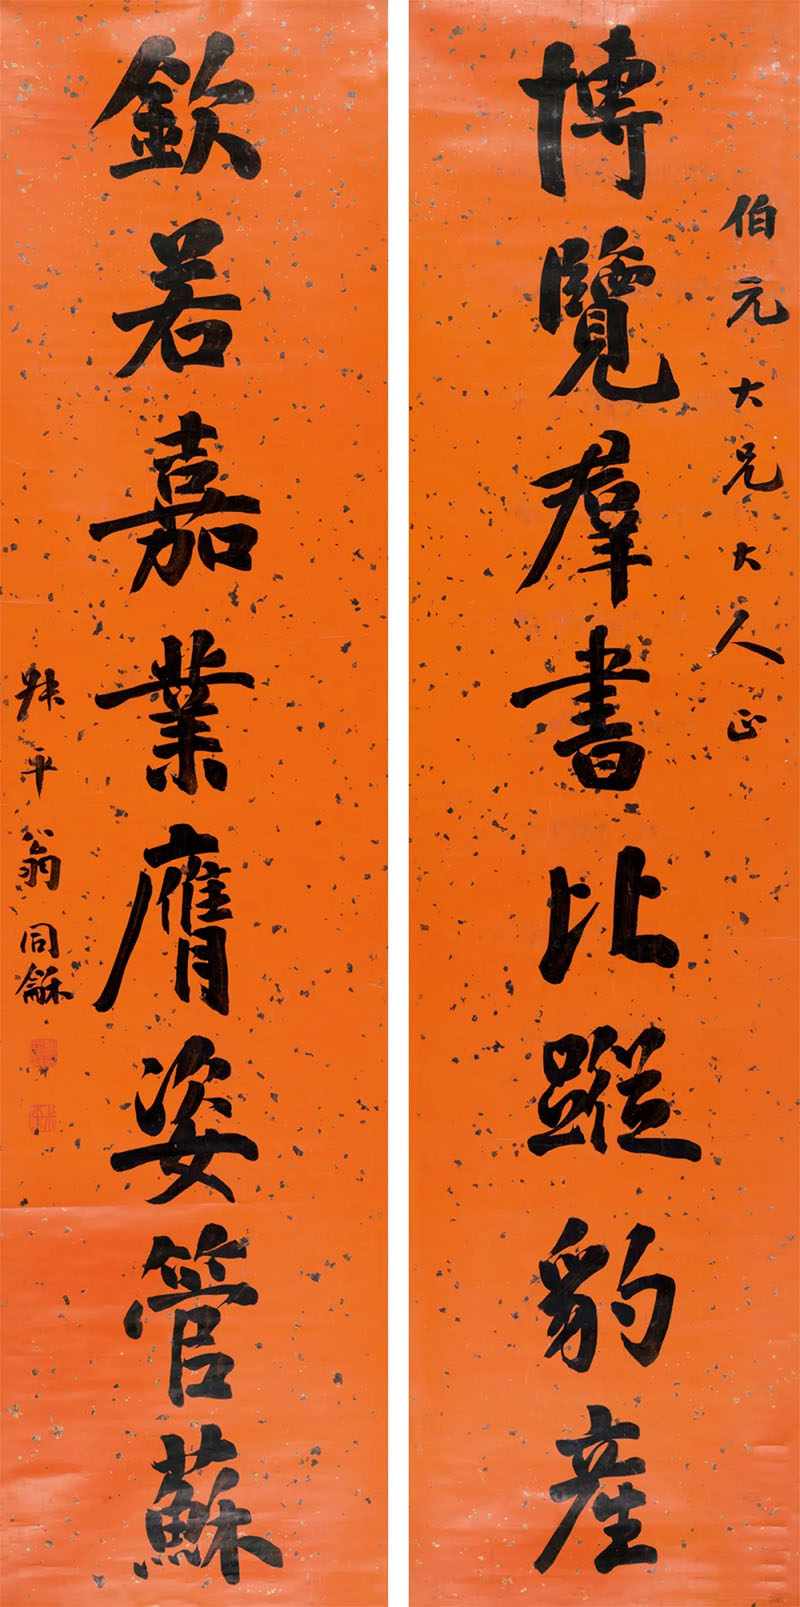 伯元大兄大人正
博覽羣書比蹤豹產
欽若嘉業膺姿管蘇
叔平翁同龢